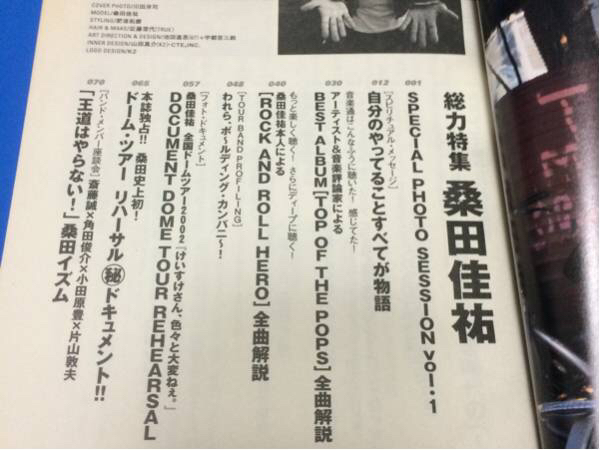 COVER PHOTO/川田洋司
MODEL/桑田佳祐
HAIR & MAKE/佐藤志代(TRUE)
INNER DESIGN/山田真介(K2)+CTE,INC.
LOGO DESIGN/K2
総力特集 桑田佳祐
001
SPECIAL PHOTO SESSION vol.1
012
[スピリチュアル・メッセージ]
自分のやってることすべてが物語
030
音楽通はこんなふうに聴いた! 感じてた!
アーティスト&音楽評論家による
BEST ALBUM[TOP OF THE POPS]全曲解説
040
もっと楽しく聴く! さらにディープに聴く!
桑田佳祐本人による
[ROCK AND ROLL HERO]全曲解説
048
[TOUR BAND PROFILING]
われら、ボールディング・カンパニー!
057
[フォト・ドキュメント]
桑田佳祐 全国ドームツアー2002『けいすけさん、色々と大変ねぇ。』
DOCUMENT DOME TOUR REHEARSAL
065
本誌独占!! 桑田史上初!
ドーム・ツアー リハーサル㊙ドキュメント!!
070
[バンド・メンバー座談会]斎藤誠×角田俊介×小田原豊×片山敦夫
「王道はやらない!」桑田イズム